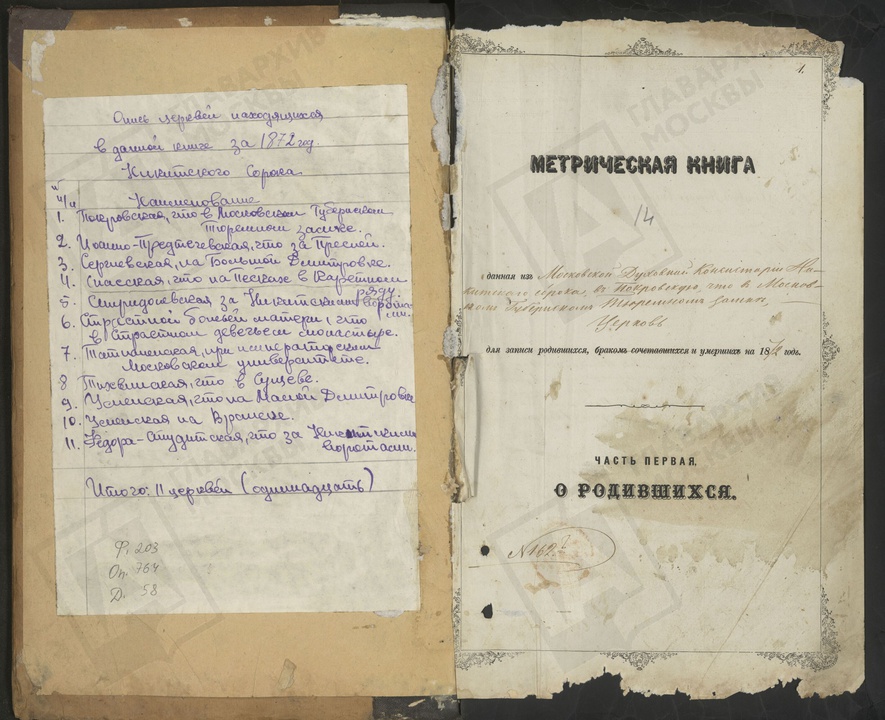 Опись церквей находящихся
в данной книге за 1872 год.
Никитского Сорока
№
п/п Наименование
1. Покровская, что в Московском Губернском
Тюремном замке.
2. Иоанно-Предтечевская, что за Пресней.
3. Сергиевская, на Большой Дмитровке.
4. Спасская, что на Песках в Каретном
ряду.
5. Спиридоновская за Никитскими воротами.
6. Страстной божьей матери, что
в Страстном девичьем монастыре.
7. Татианинская, при императорском
Московском университете.
8 Тихвинская, что в Сущеве.
9. Успенская, что на Малой Дмитровке
10. Успенская на Вражке.
11. Федора-Студитская, что за Никитскими
воротами.
Итого: 11 церквей (одиннадцать)
Ф. 203
Оп. 764
Д. 58
1.
МЕТРИЧЕСКАЯ КНИГА
14
данная изъ Московской Духовной Консисторіи Ни-
китскаго сорока, въ Покровскую, что въ Москов-
скомъ Губернскомъ Тюремномъ замкѣ,
Церковь
для записи родившихся, бракомъ сочетавшихся и умершихъ на 1872 годъ.
ЧАСТЬ ПЕРВАЯ.
О РОДИВШИХСЯ.
N 162
ГЛАВАРХИВ
МОСКВЫ